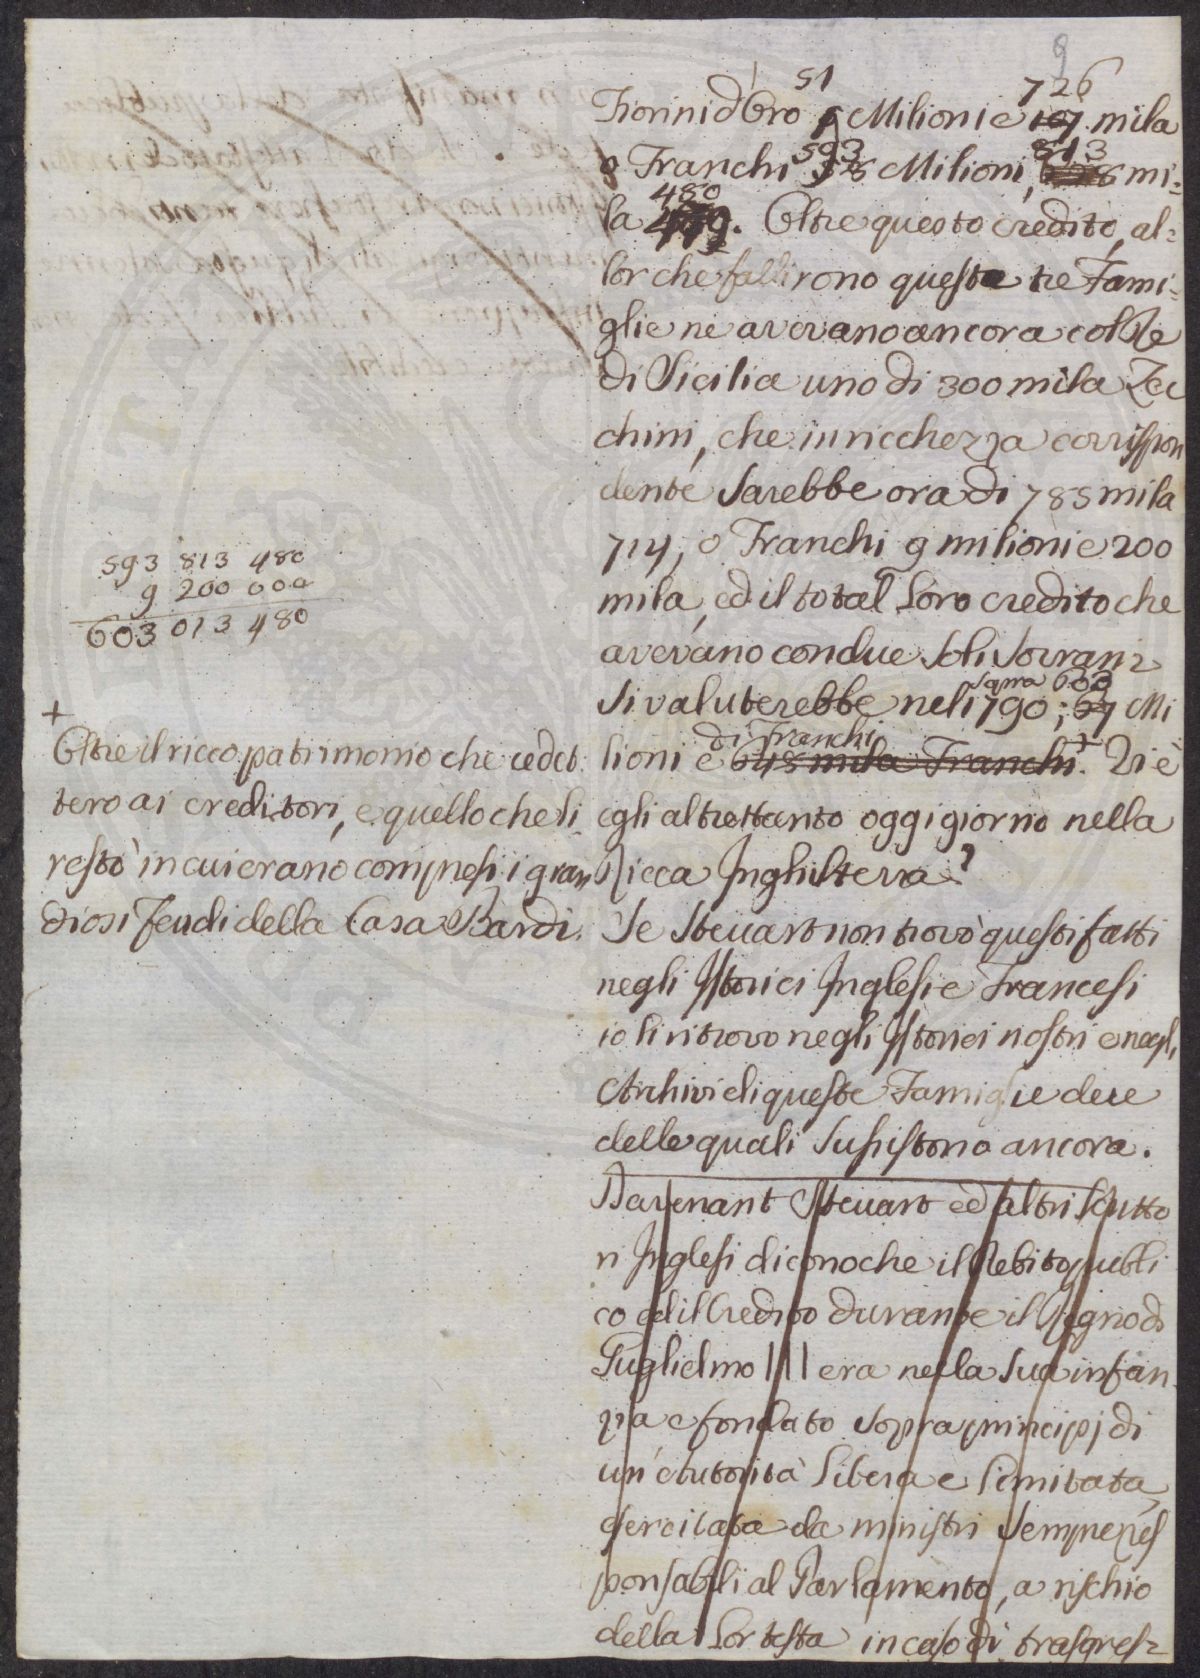 9
51 726
Fiorini d'Oro 9 Milioni e 107 mila
593 813
o Franchi Milioni, mi=
480
la 479. Oltre questo credito, al=
lor che fallirono queste tre Fami=
glie ne avevano ancora col Re
di Sicilia uno di 300 mila Zec
chini, che in ricchezza corrispon
dente sarebbe ora di 785 mila
714, o Franchi 9 milioni e 200
mila, ed il total loro credito che
avevano con due soli Sovrani
sopra 603
si valuterebbe nel 1790; 67 Mi
di Franchi
lioni e 648 mila Franchi. Vi è
egli altrettanto oggigiorno nella
Ricca Inghilterra?
Se Steuart non trovò questi fatti
negli Istorici Inglesi e Francesi
io li ritrovo negli Istorici nostri e negli
Archivi di queste Famiglie due
delle quali sussistono ancora.
Davenant Steuart ed altri Scritto
ri Inglesi dicono che il Debito pubbli
co ed il Credito durante il Regno di
Guglielmo III era nella sua infan
zia e fondato sopra principj di
un'Autorità libera e limitata,
esercitata da ministri sempre res
ponsabili al Parlamento, a rischio
della lor testa in caso di trasgres=
593 813 480
9 200 000
603 013 480
+
Oltre il ricco patrimonio che cedet
tero ai creditori, e quello che li
restò in cui erano compresi i gran
diosi feudi della Casa Bardi.